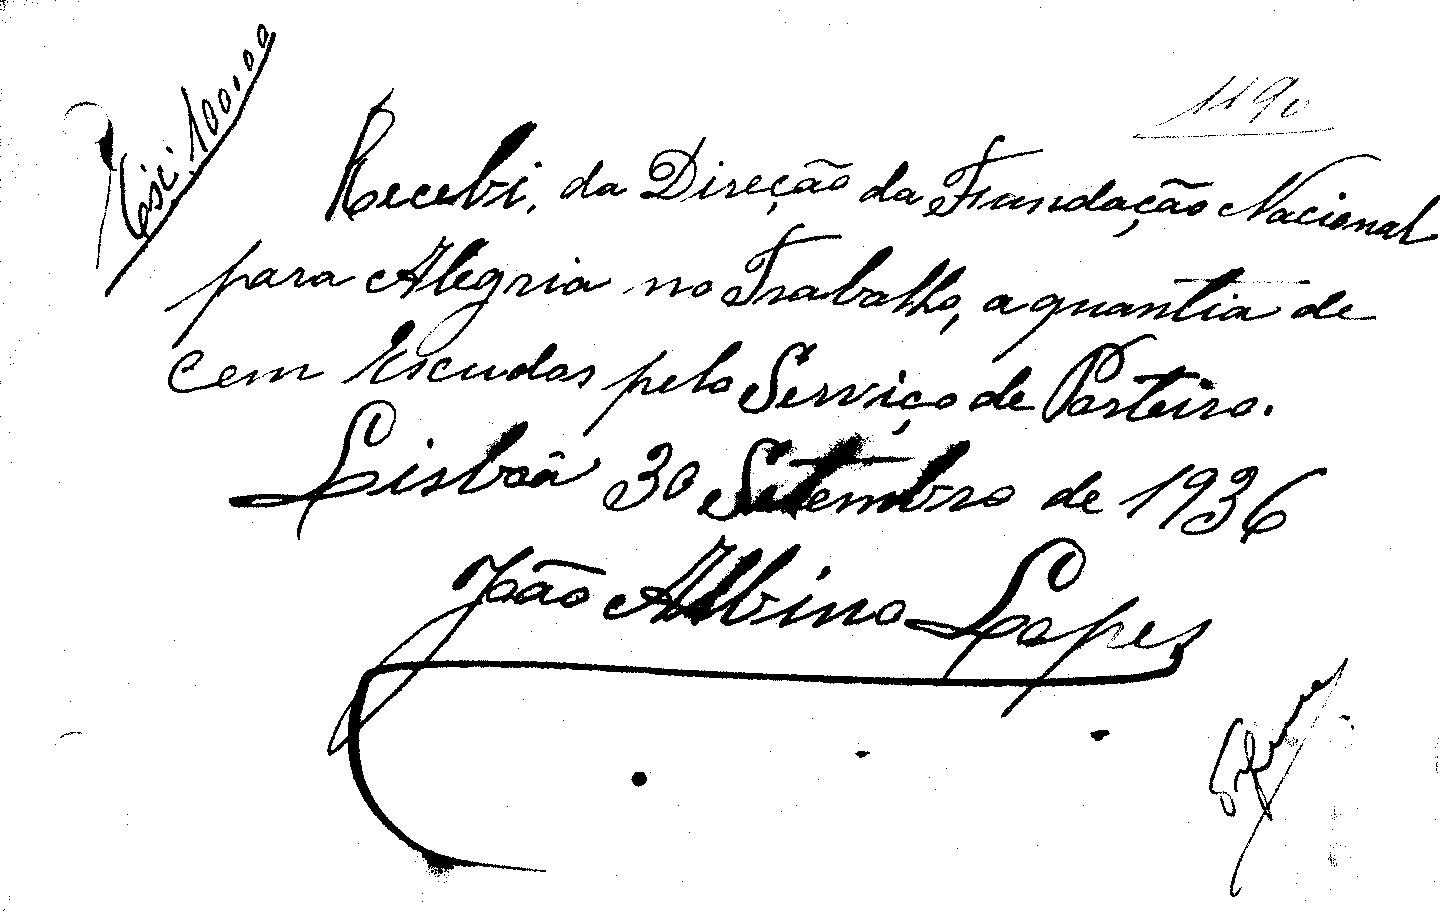 Esc: 100.00
1190
Recebi, da Direção da Fundação Nacional
para Alegria no Trabalho, a quantia de
Cem Escudos pelo Serviço de Porteiro.
Lisboâ 30 Setembro de 1936
João Albino Lopes